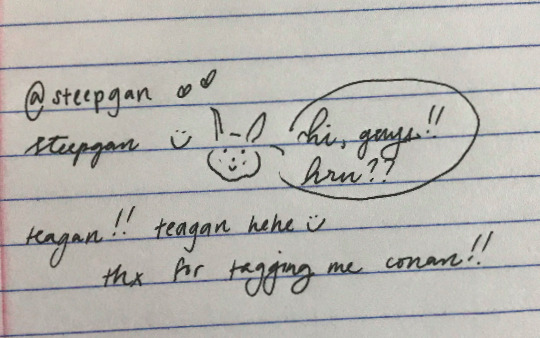 @steepgan
steepgan
hi, guys!!
hru??
teagan!! teagan hehe
thx for tagging me conan!!